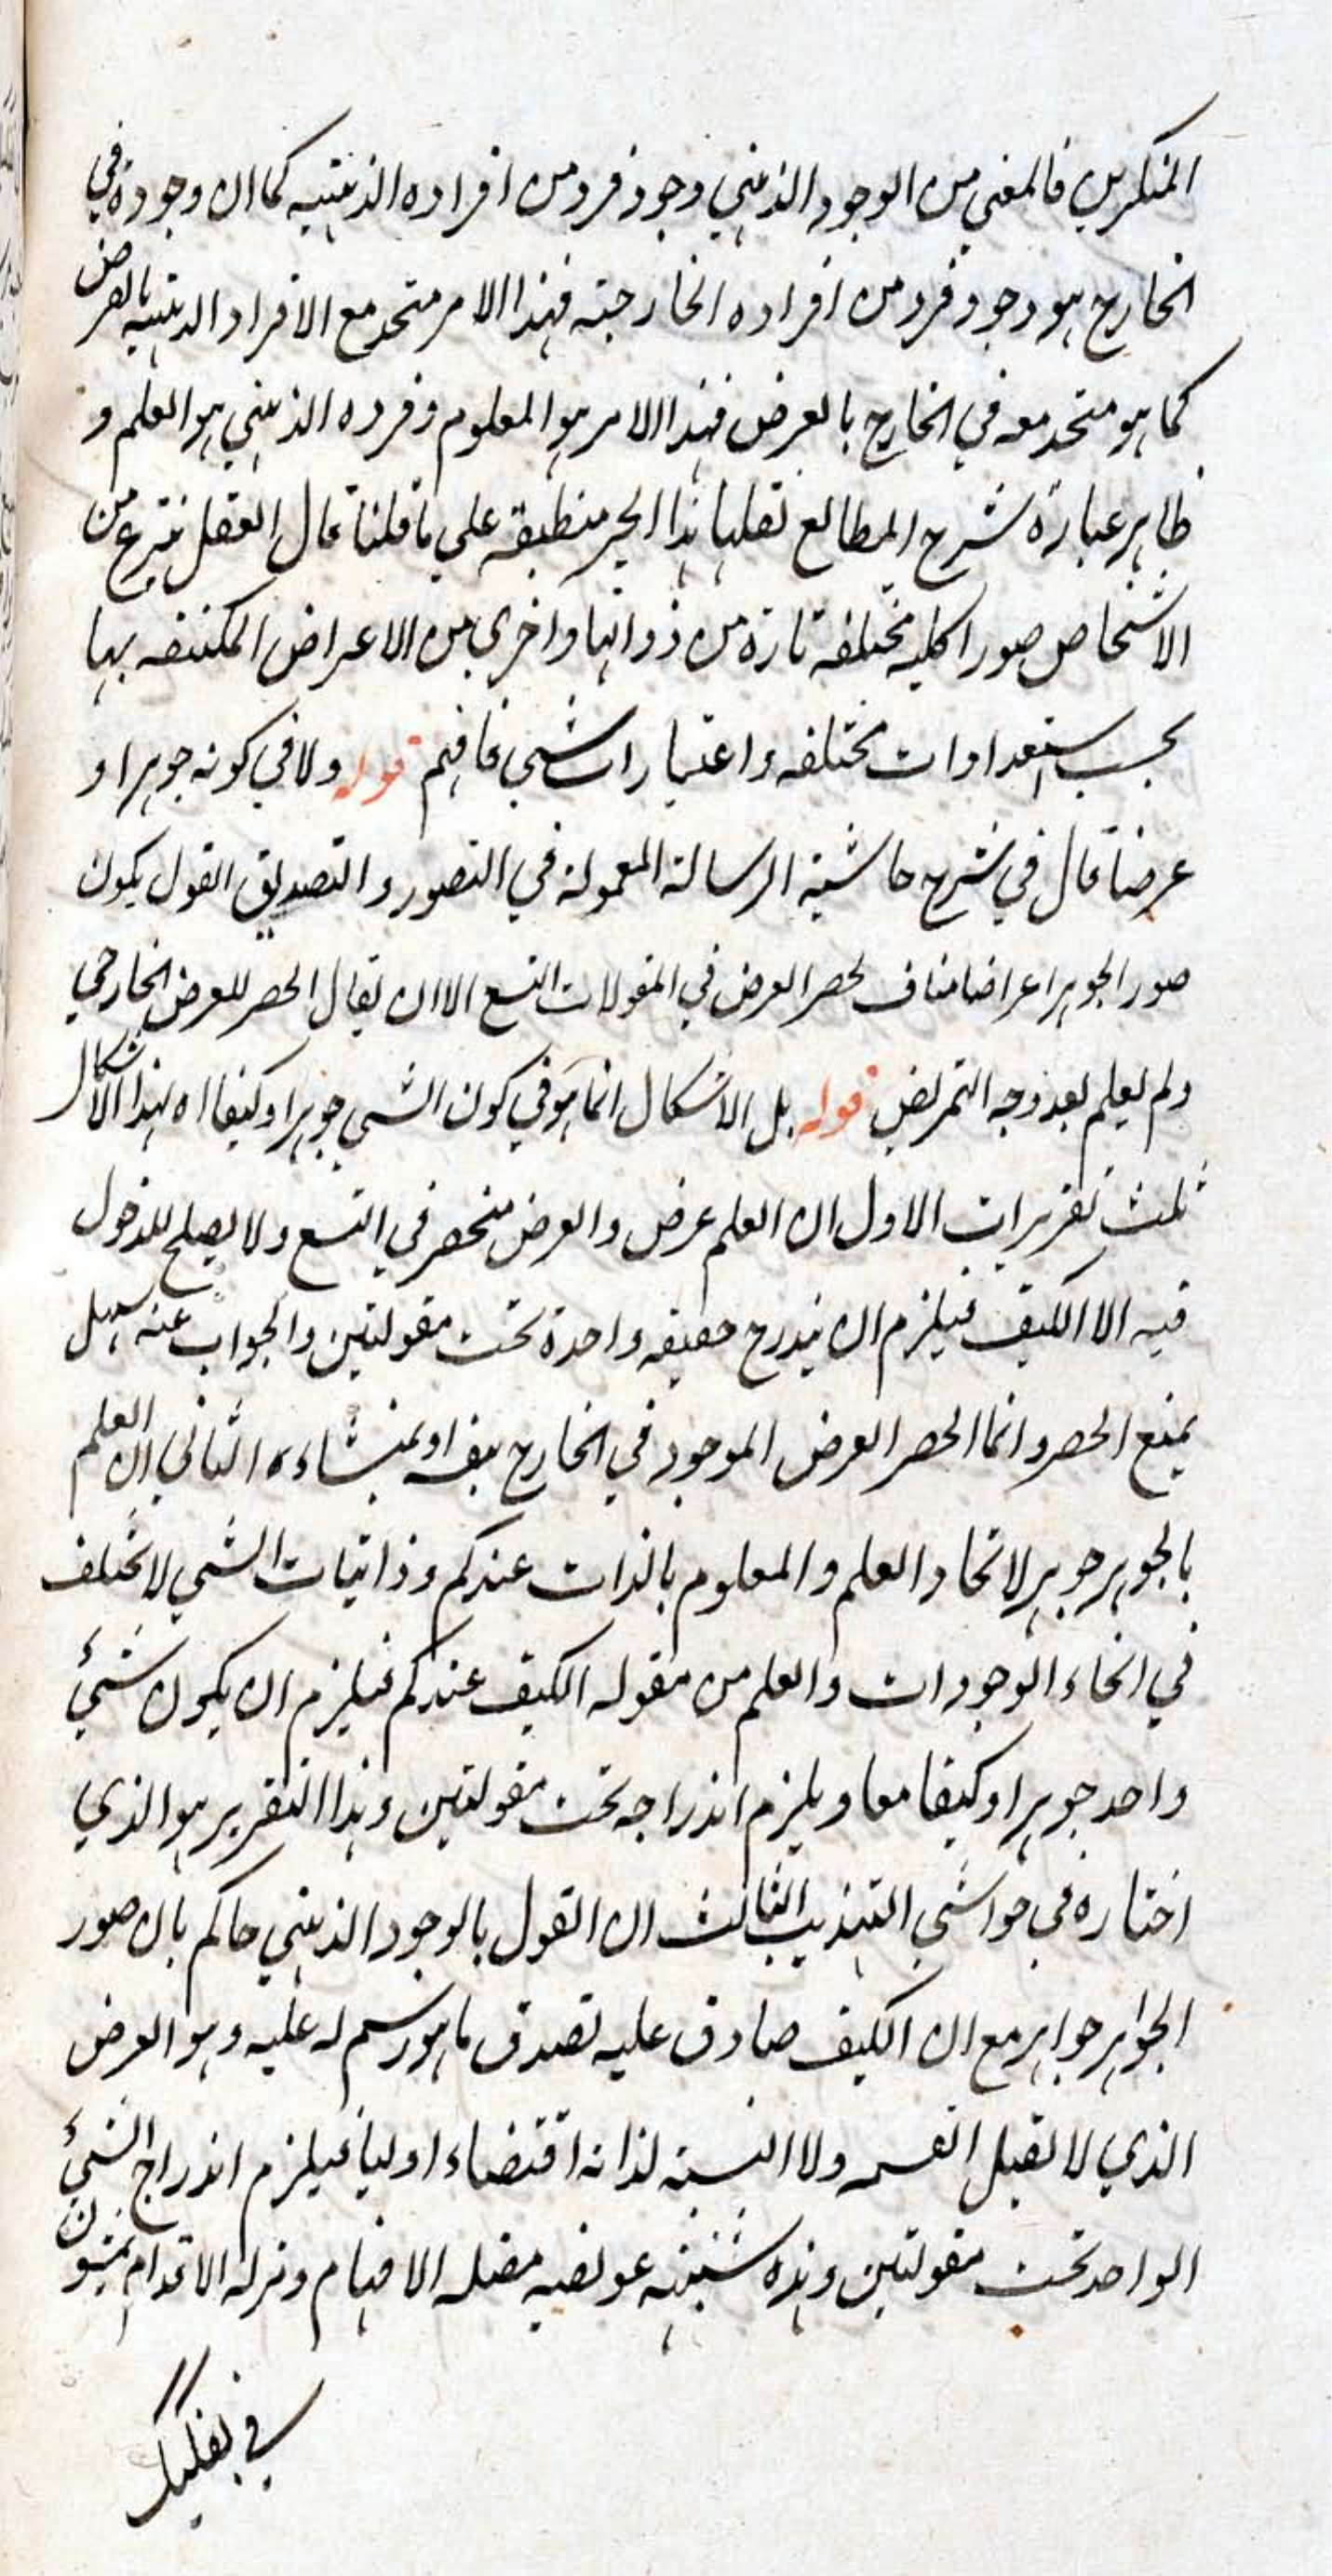 المنكرين فالمعني من الوجود الذهني وجود فرد من افراده الذهنيه كما ان وجوده في
الخارج هو وجود فرد من افراده الخارجية فهذا الامر متحد مع الافراد الذهنيه بالعرض
كما هو متحد معه في الخارج بالعرض فهذا الامر هو المعلوم وفرده الذهني هو العلم و
ظاهر عبارة شرح المطالع نقلها هذا الحبر منطبقة علي ما قلنا قال العقل ينتزع من
الاشخاص صورا كليه مختلفه تارة من ذواتها واخري من الاعراض المكتنفه بها
بحسب استعدادات مختلفه واعتبارات شتي فافهم قوله ولا في كونه جوهرا و
عرضا قال في شرح حاشية الرسالة المعمولة في التصور والتصديق القول بكون
صور الجوهر اعراضا مناف لحصر العرض في المقولات التسع الا ان يقال الحصر للعرض الخارجي
ولم يعلم بعد وجه التمريض قوله بل الاشكال انما هو في كون الشي جوهرا وكيفا اه لهذا الاشكال
ثلث تقريرات الاول ان العلم عرض والعرض منحصر في التسع ولا يصلح للدخول
فيه الا الكيف فيلزم ان يندرج حقيقه واحدة تحت مقولتين والجواب عنه سهل
بمنع الحصر وانما الحصر العرض الموجود في الخارج بنفسه او بمنشاءه الثاني ان العلم
بالجوهر جوهر لاتحاد العلم والمعلوم بالذات عندكم وذاتيات الشي لا تختلف
في انحاء الوجودات والعلم من مقوله الكيف عندكم فيلزم ان يكون شيئ
واحد جوهرا وكيفا معا ويلزم اندراجه تحت مقولتين وهذا التقرير هو الذي
اختاره في حواشي التهذيب الثالث ان القول بالوجود الذهني حاكم بان صور
الجواهر جواهر مع ان الكيف صادق عليه لصدق ما هو رسم له عليه وهو العرض
الذي لا يقبل القسمه ولا النسبة لذاته اقتضاء اوليا فيلزم اندراج الشيئ
الواحد تحت مقولتين وهذه شبهة عويصه مضله الافهام ومزلة الاقدام